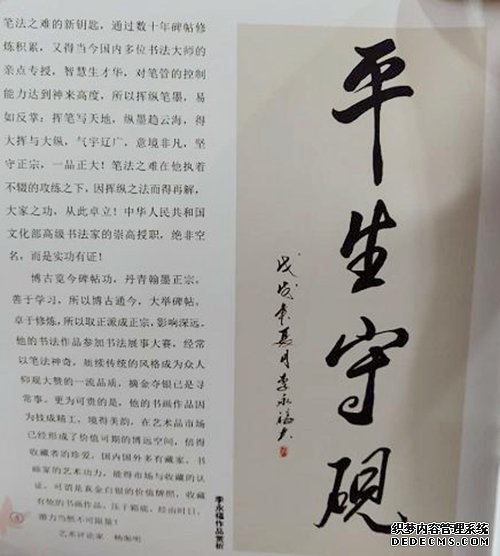 笔法之难的新钥匙，通过数十年碑帖修
炼积累，又得当今国内多位书法大师的
亲点专授，智慧生才华，对笔管的控制
能力达到神来高度，所以挥纵笔墨，易
如反掌：挥笔写天地，纵墨趋云海，得
大挥与大纵，气宇辽广，意境非凡，坚
守正宗，一品正大！笔法之难在他执着
不辍的攻练之下，因挥纵之法而得再解，
大家之功，从此卓立！中华人民共和国
文化部高级书法家的崇高授职，绝非空
名，而是实功有证！
博古览今碑帖功，丹青翰墨正宗，
善于学习，所以博古通今，大举碑帖，
卓于修炼，所以取正派成正宗，影响深远。
他的书法作品参加书法展事大赛，经常
以笔法神奇，质续传统的风格成为众人
仰观大赞的一流品质，摘金夺银已是寻
常事。更为可贵的是，他的书画作品因
为技成精工，境得美韵，在艺术品市场
已经形成了价值可期的博远空间，倍得
收藏者的珍爱。国内国外多有藏家，书
画家的艺术功力，能得市场与收藏的认
证，可谓是真金白银的价值牌照，收藏
有他的书画作品，压于箱底，经由时日，
潜力当然不可限量！
艺术评论家 杨海明
平生守砚
戊戌年夏月李永福书
李永福作品赏析
织梦内容管理系统
DEDECMS.COM